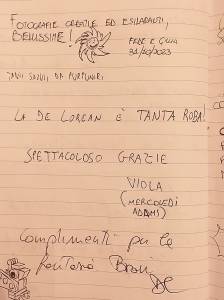 FOTOGRAFIE CREATIVE ED ESILARANTI,
BELLISSIME!
FEDE E GIULIA
31/10/2023
TANTI SALUTI, DA
LA DE LOREAN È TANTA ROBA!
SPETTACOLOSO GRAZIE
VIOLA
(MERCOLEDÌ
ADDAMS)
Complimenti per la
fantasia Bravi